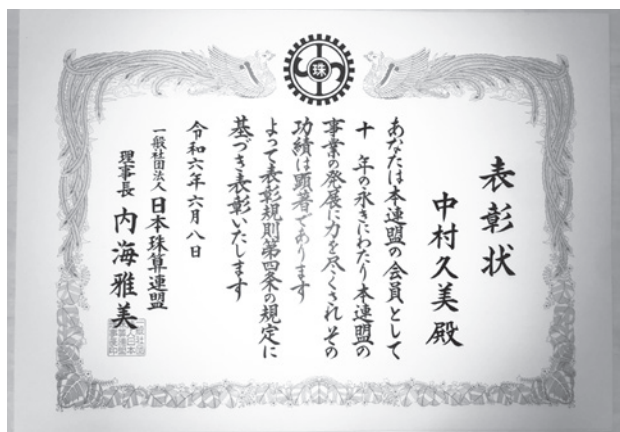 珠
表彰状
中村久美殿
あなたは本連盟の会員として
十 年の永きにわたり本連盟の
事業の発展に力を尽くされ その
功績は顕著であります
よって表彰規則第四条の規定に
基づき表彰いたします
令和六年六月八日
一般社団法人 日本珠算連盟
理事長 内海雅美